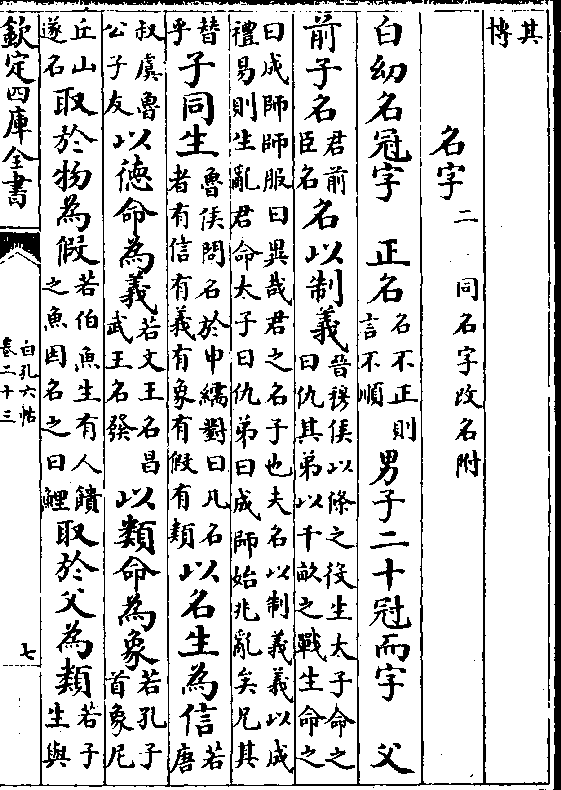 其
博
名字二 同名字改名附
白幼名冠字 正名名不正則言不順 男子二十冠而字 父
前子名君前臣名名以制義晉穆侯以條之役生太子命之曰仇其弟以千畝之戰生命之
曰成師師服曰異哉君之名子也夫名以制義義以成
禮易則生亂君命太子曰仇弟曰成師始兆亂矣兄其
替乎子同生魯侯問名於申繻對曰凡名者有信有義有象有假有類以名生為信若唐
叔虞魯公子友以德命為義若文王名昌武王名發以類命為象若孔子首象尼
丘山遂名取於物為假若伯魚生有人饋之魚因名之曰鯉取於父為類若子生與
欽定四庫全書
白孔六帖
卷二十三
七